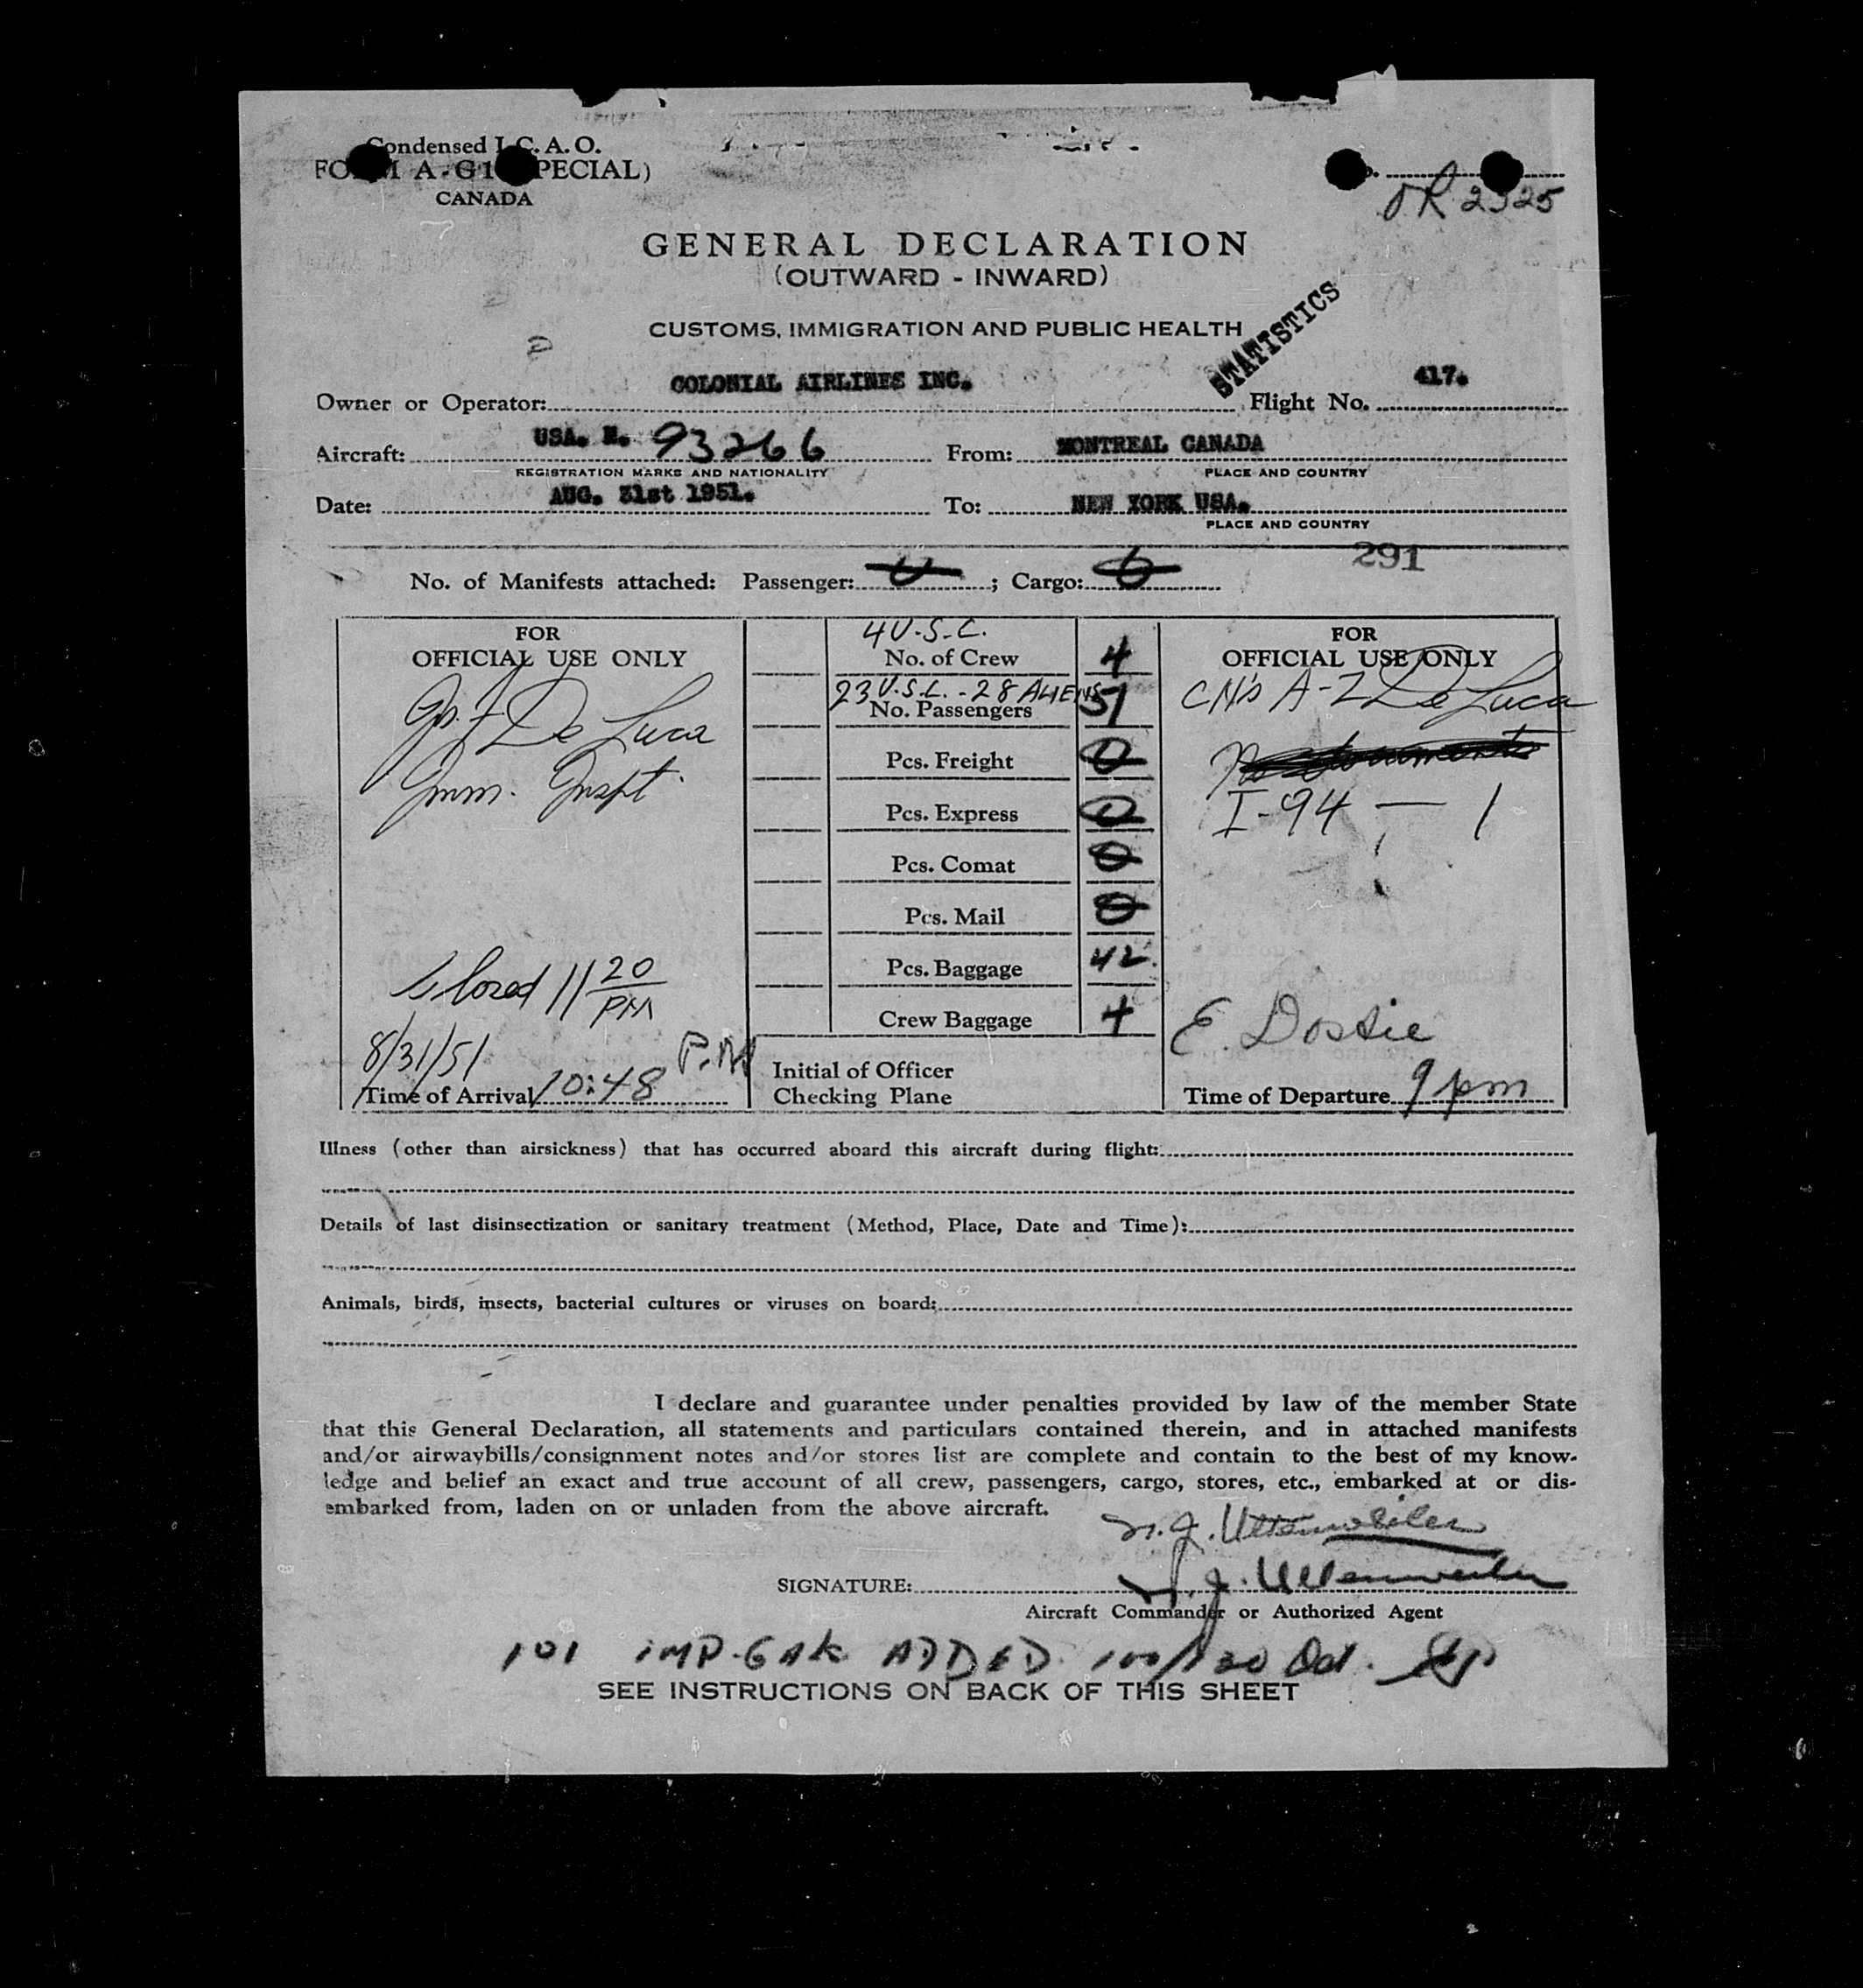 Condensed I.C.A.O.
FORM A-G1 (SPECIAL)
CANADA
OR 2325
GENERAL DECLARATION
(OUTWARD - INWARD)
CUSTOMS, IMMIGRATION AND PUBLIC HEALTH
STATISTICS
Owner or Operator: COLONIAL AIRLINES INC. Flight No. 417.
Aircraft: USA. N. 93266 From: MONTREAL CANADA
REGISTRATION MARKS AND NATIONALITY PLACE AND COUNTRY
Date: AUG. 31st 1951. To: NEW YORK USA.
PLACE AND COUNTRY
291
No. of Manifests attached: Passenger: 0; Cargo: 0
FOR
OFFICIAL USE ONLY
De Luca
Imm. Inspt.
Closed 11 20
PM
8/31/51
Time of Arrival 10:48 P.M
4 U.S.C.
No. of Crew 4
23 U.S.C. - 28 ALIENS
No. Passengers 51
Pcs. Freight 0
Pcs. Express 0
Pcs. Comat 0
Pcs. Mail 0
Pcs. Baggage 42
Crew Baggage 4
Initial of Officer
Checking Plane
FOR
OFFICIAL USE ONLY
CN's A-Z De Luca
I-94 — 1
E. Dostie
Time of Departure 9 pm
Illness (other than airsickness) that has occurred aboard this aircraft during flight:
Details of last disinsectization or sanitary treatment (Method, Place, Date and Time):
Animals, birds, insects, bacterial cultures or viruses on board:
I declare and guarantee under penalties provided by law of the member State
that this General Declaration, all statements and particulars contained therein, and in attached manifests
and/or airwaybills/consignment notes and/or stores list are complete and contain to the best of my know-
ledge and belief an exact and true account of all crew, passengers, cargo, stores, etc., embarked at or dis-
embarked from, laden on or unladen from the above aircraft.
J. Uttenweiler
SIGNATURE: J. Uttenweiler
Aircraft Commander or Authorized Agent
101 IMP. GAK ADDED 100/130 Oct.
SEE INSTRUCTIONS ON BACK OF THIS SHEET